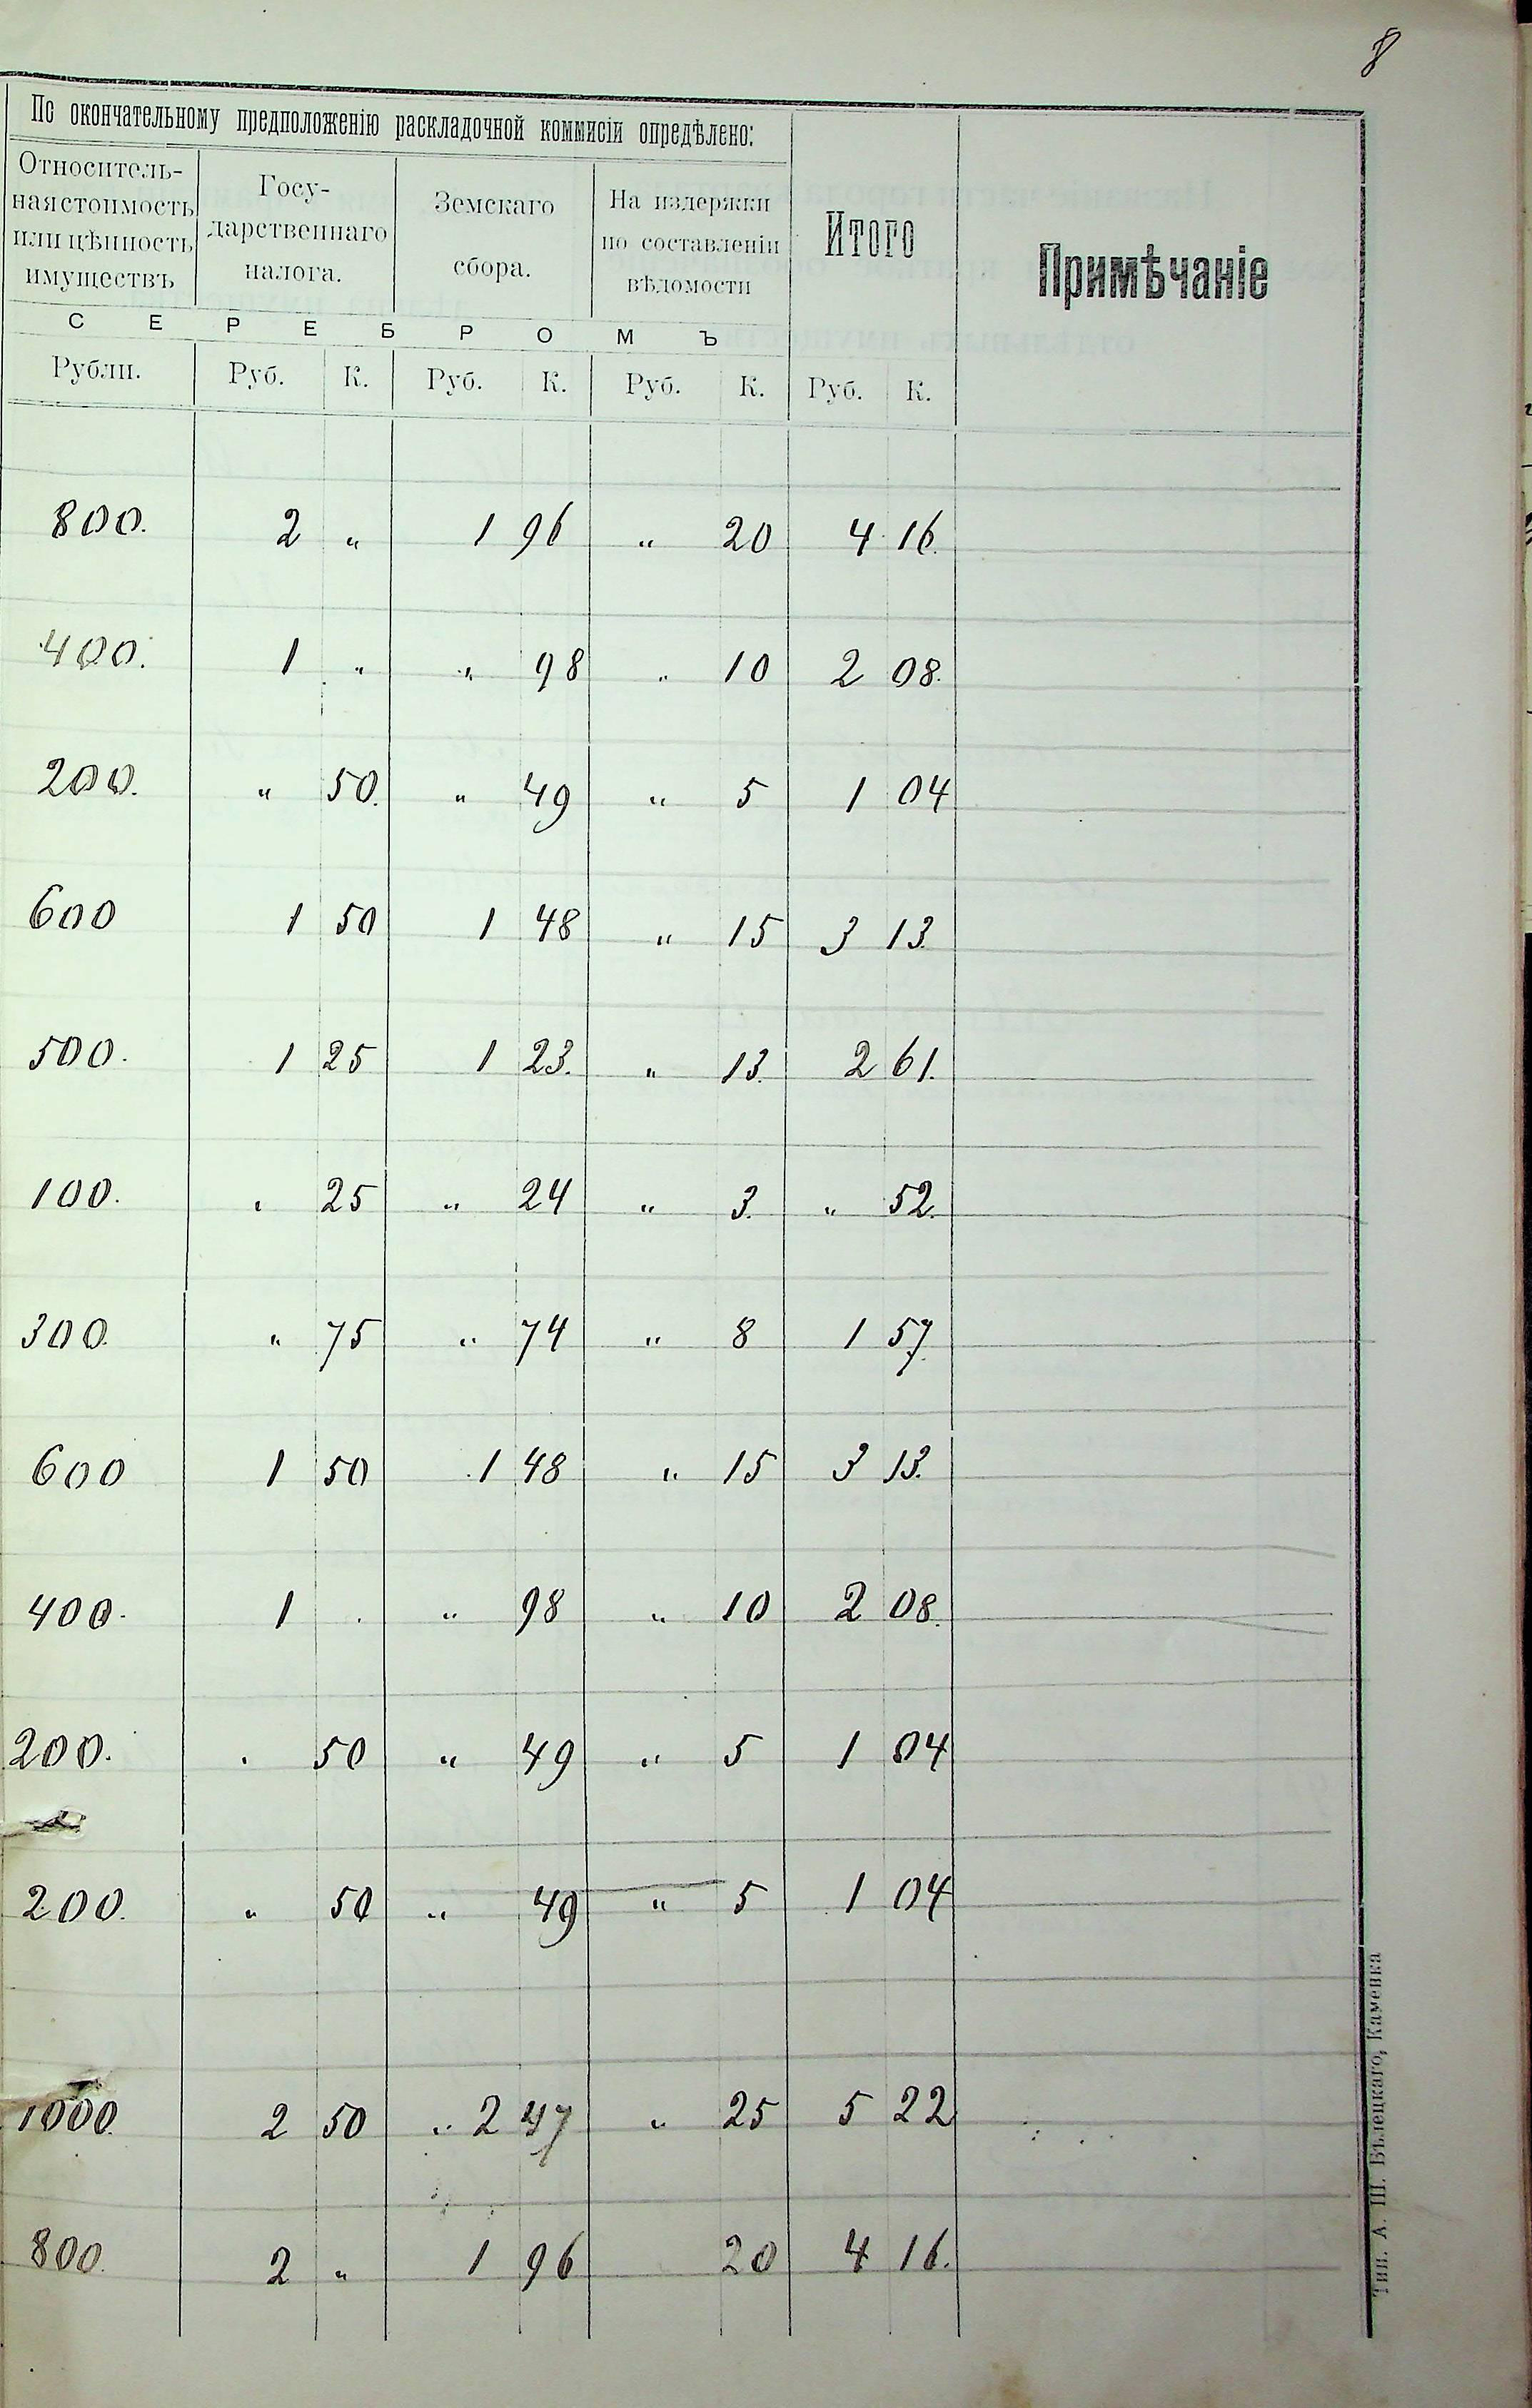 8
По окончательному предположенію раскладочной коммисіи опредѣлено:
Относитель-
ная стоимость
или цѣнность
имуществъ
Госу-
дарственнаго
налога.
Земскаго
сбора.
На издержки
по составленіи
вѣдомости
Итого
Примѣчаніе
С Е Р Е Б Р О М Ъ
Рубли. Руб. К. Руб. К. Руб. К. Руб. К.
800. 2 „ 1 96 „ 20 4 16.
400. 1 „ „ 98 „ 10 2 08.
200. „ 50. „ 49 „ 5 1 04
600 1 50 1 48 „ 15 3 13.
500. 1 25 1 23. „ 13. 2 61.
100. „ 25 „ 24 „ 3. „ 52.
300. „ 75 „ 74 „ 8 1 57.
600 1 50 1 48 „ 15 3 13.
400. 1 . „ 98 „ 10 2 08.
200. „ 50 „ 49 „ 5 1 04
200. „ 50 „ 49 „ 5 1 04
1000. 2 50 „ 2 47 „ 25 5 22
800. 2 „ 1 96 20 4 16.
Тип. А. Ш. Бѣлецкаго, Каменка